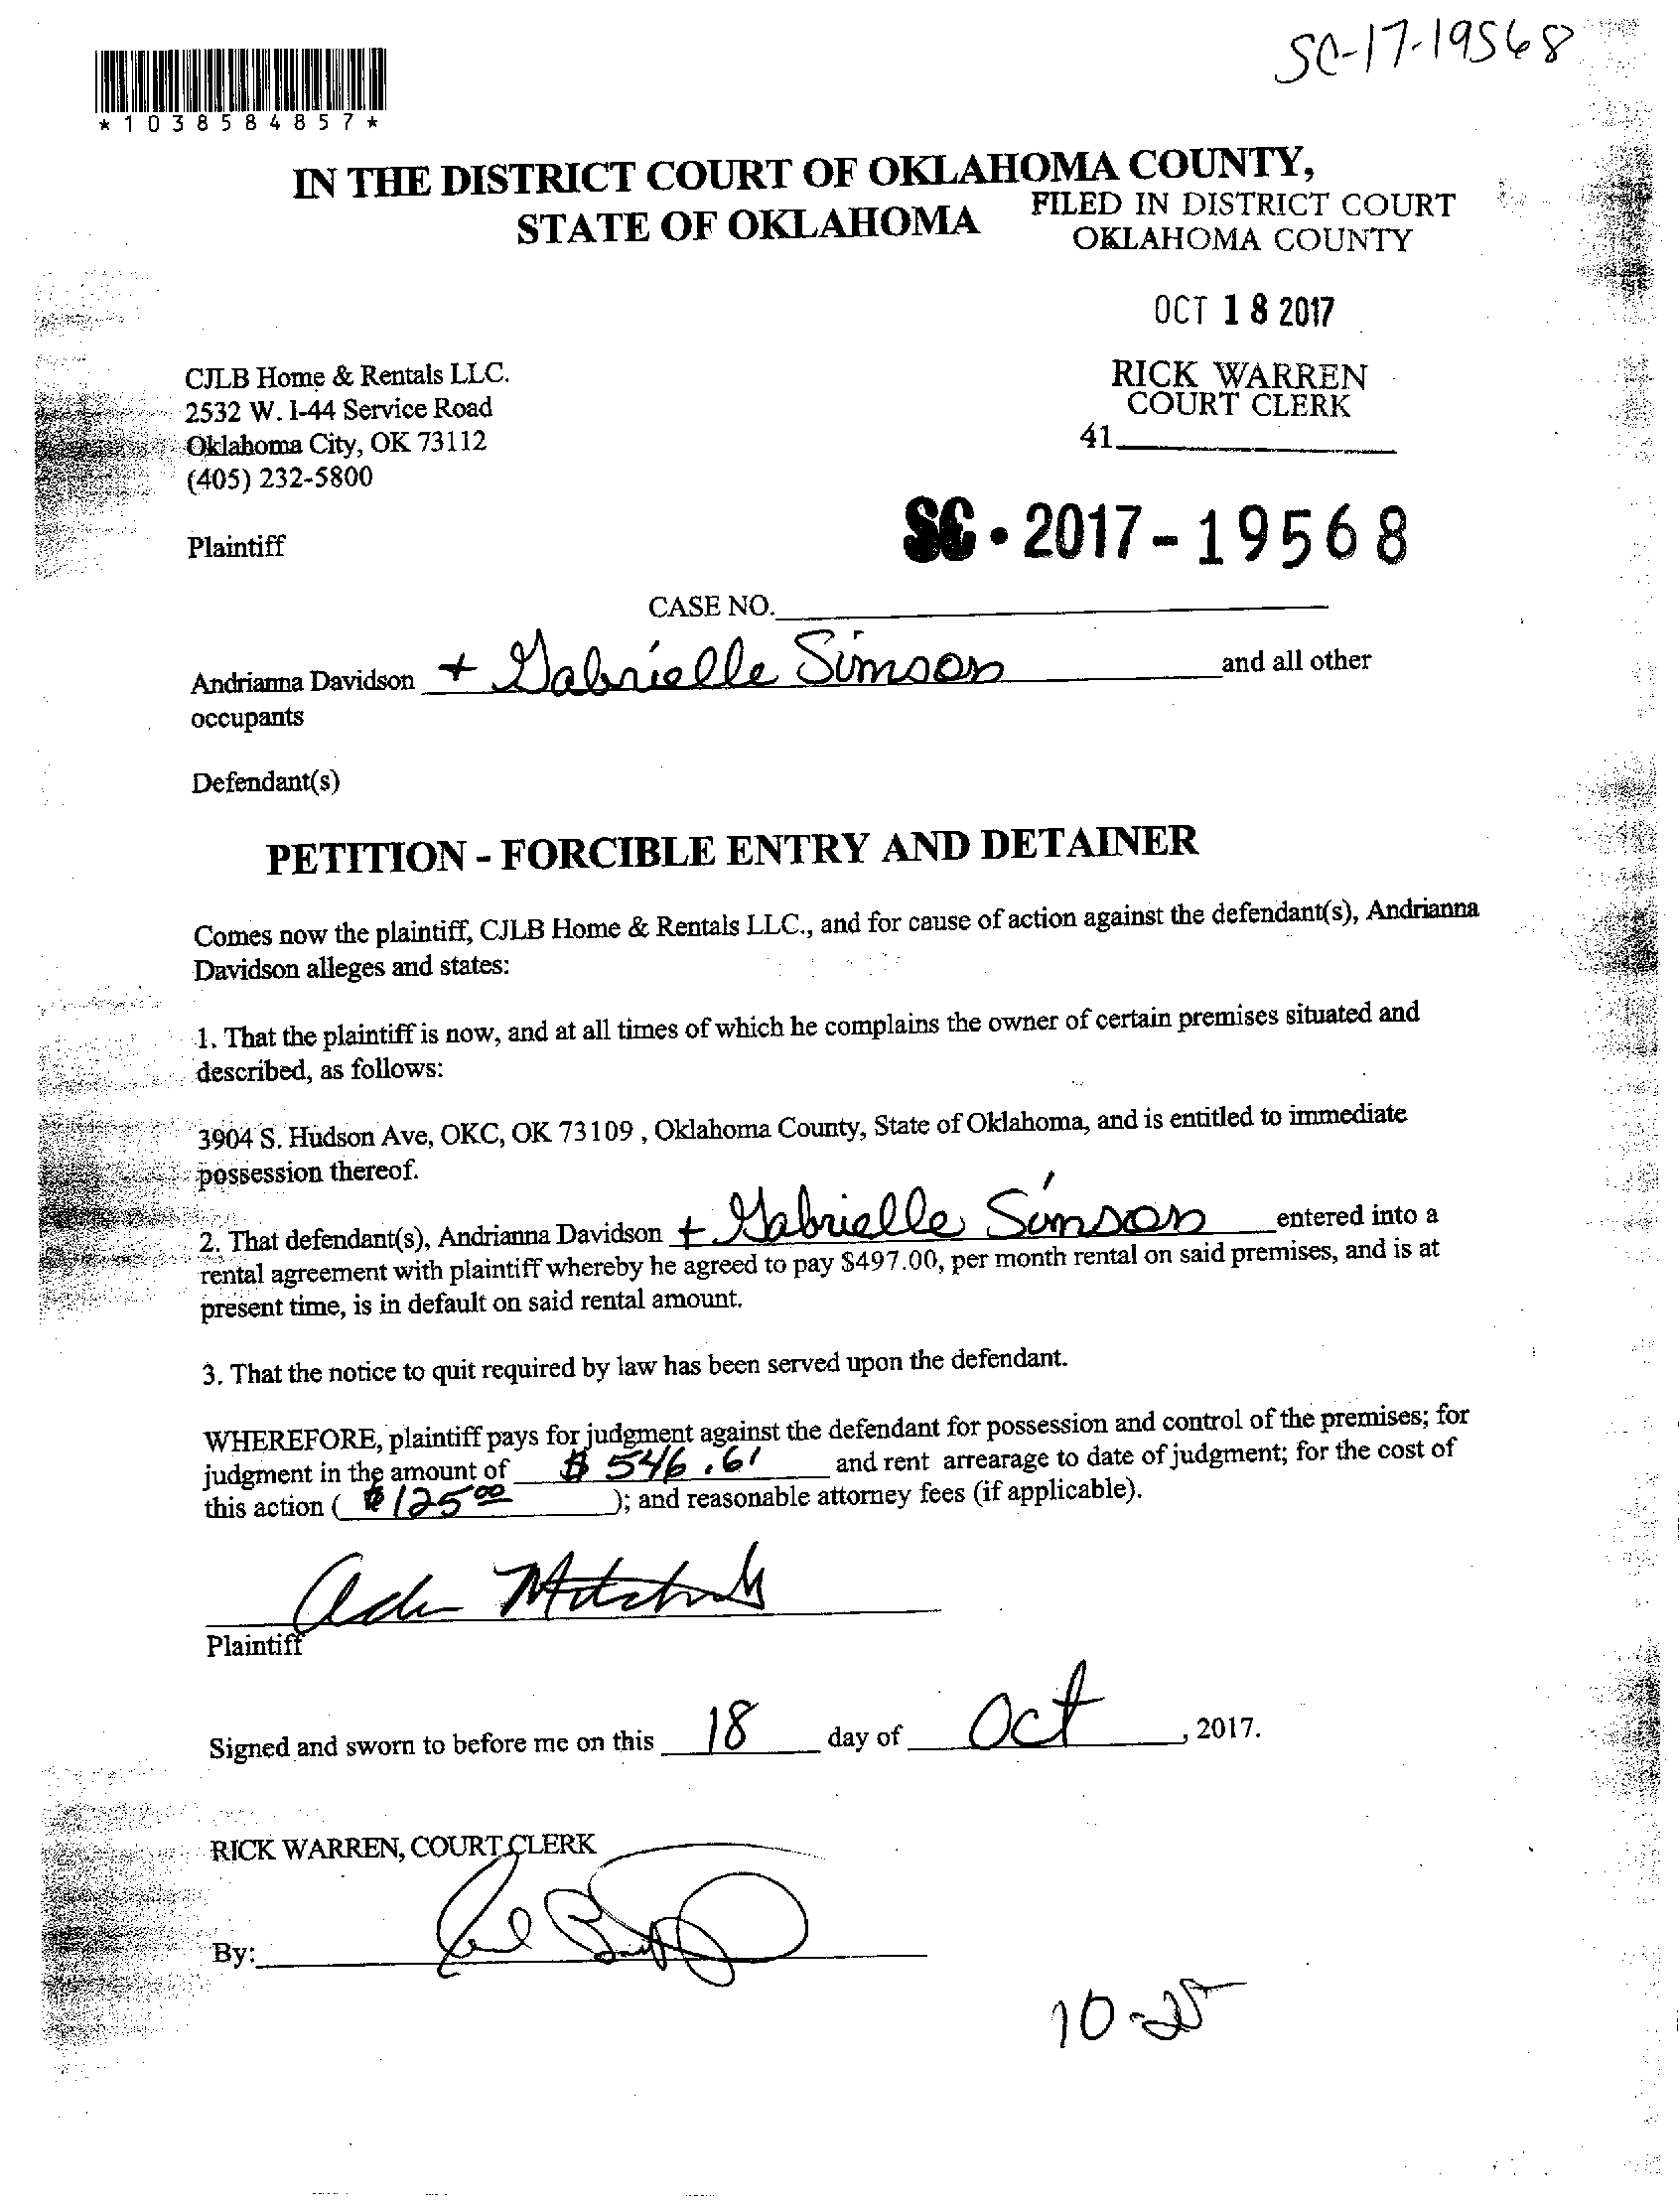 SC-17-19568
*1038584857*
IN THE DISTRICT COURT OF OKLAHOMA COUNTY,
STATE OF OKLAHOMA
FILED IN DISTRICT COURT
OKLAHOMA COUNTY
OCT 18 2017
RICK WARREN
COURT CLERK
41
CJLB Home & Rentals LLC.
2532 W. I-44 Service Road
Oklahoma City, OK 73112
(405) 232-5800
Plaintiff
SC-2017-19568
CASE NO.
Andrianna Davidson + Gabrielle Simson and all other
occupants
Defendant(s)
PETITION - FORCIBLE ENTRY AND DETAINER
Comes now the plaintiff, CJLB Home & Rentals LLC., and for cause of action against the defendant(s), Andrianna
Davidson alleges and states:
1. That the plaintiff is now, and at all times of which he complains the owner of certain premises situated and
described, as follows:
3904 S. Hudson Ave, OKC, OK 73109 , Oklahoma County, State of Oklahoma, and is entitled to immediate
possession thereof.
2. That defendant(s), Andrianna Davidson + Gabrielle Simson entered into a
rental agreement with plaintiff whereby he agreed to pay $497.00, per month rental on said premises, and is at
present time, is in default on said rental amount.
3. That the notice to quit required by law has been served upon the defendant.
WHEREFORE, plaintiff pays for judgment against the defendant for possession and control of the premises; for
judgment in the amount of $ 546.61 and rent arrearage to date of judgment; for the cost of
this action ( $125.00 ); and reasonable attorney fees (if applicable).
Plaintiff
Signed and sworn to before me on this 18 day of Oct , 2017.
RICK WARREN, COURT CLERK
By:
10-25